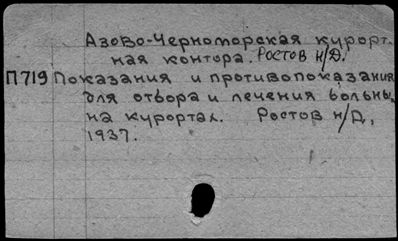 Азово-Черноморская курорт.
ная контора. Ростов н/Д.
П719 Показания и противопоказания
для отбора и лечения больны
на курортах. Ростов н/Д,
1937.